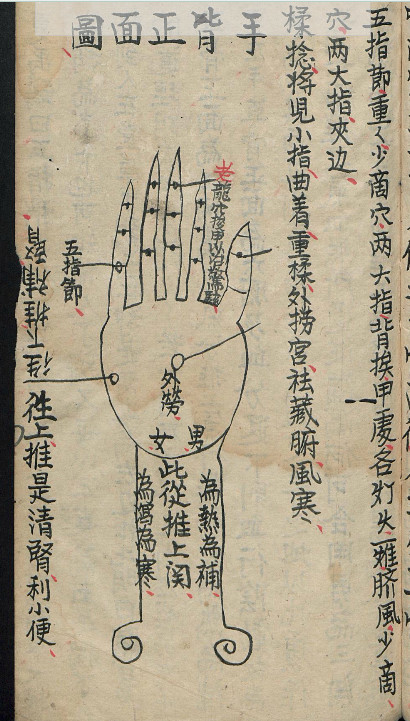 手背正面圖
五指節重〻少商穴、两大指背挨甲處各灯火一燋臍風少商、
穴、两大指夾边、
揉捻將児小指曲着重揉外捞宮祛藏腑風寒、
老龍穴
五指節
外勞
男
女
為熱為補
此從推上関
為瀉為寒
徃下推補腎
徃上推是清腎利小便